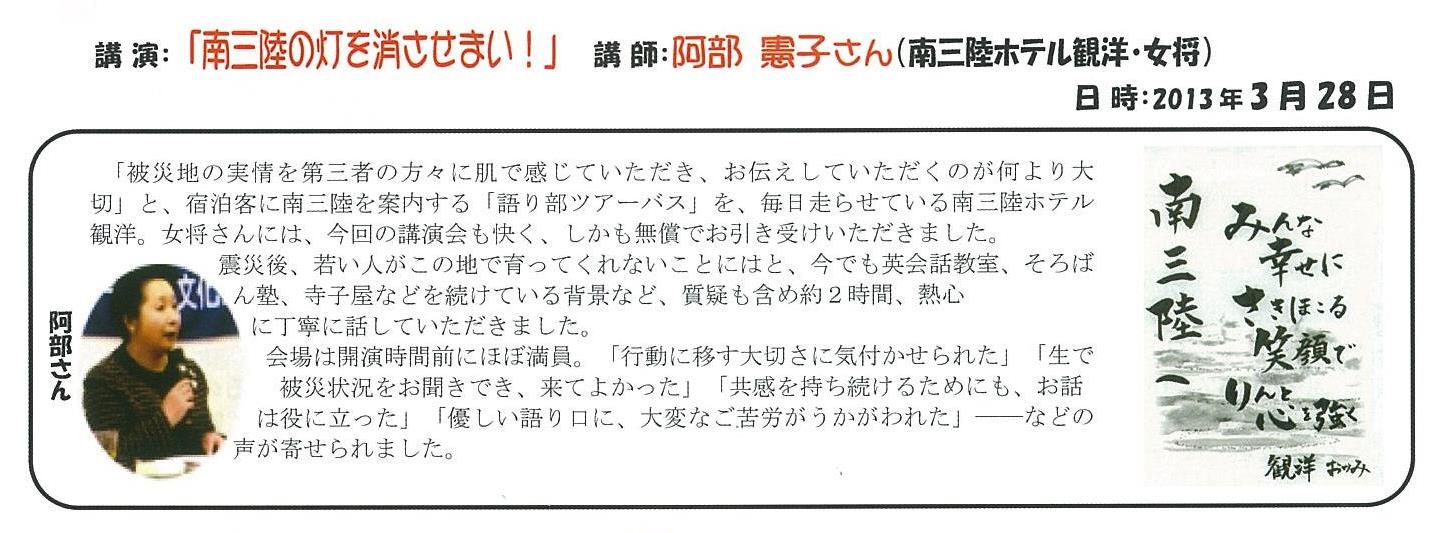 講 演:「南三陸の灯を消させまい！」 講 師:阿部 憲子さん(南三陸ホテル観洋・女将)
日 時:2013年3月28日
「被災地の実情を第三者の方々に肌で感じていただき、お伝えしていただくのが何より大
切」と、宿泊客に南三陸を案内する「語り部ツアーバス」を、毎日走らせている南三陸ホテル
観洋。女将さんには、今回の講演会も快く、しかも無償でお引き受けいただきました。
震災後、若い人がこの地で育ってくれないことにはと、今でも英会話教室、そろば
ん塾、寺子屋などを続けている背景など、質疑も含め約２時間、熱心
に丁寧に話していただきました。
会場は開演時間前にほぼ満員。「行動に移す大切さに気付かせられた」「生で
被災状況をお聞きでき、来てよかった」「共感を持ち続けるためにも、お話
は役に立った」「優しい語り口に、大変なご苦労がうかがわれた」――などの
声が寄せられました。
阿部さん
文化
南三陸
みんな
幸せに
さきほこる
笑顔で
りんと
心を強く
観洋 おかみ